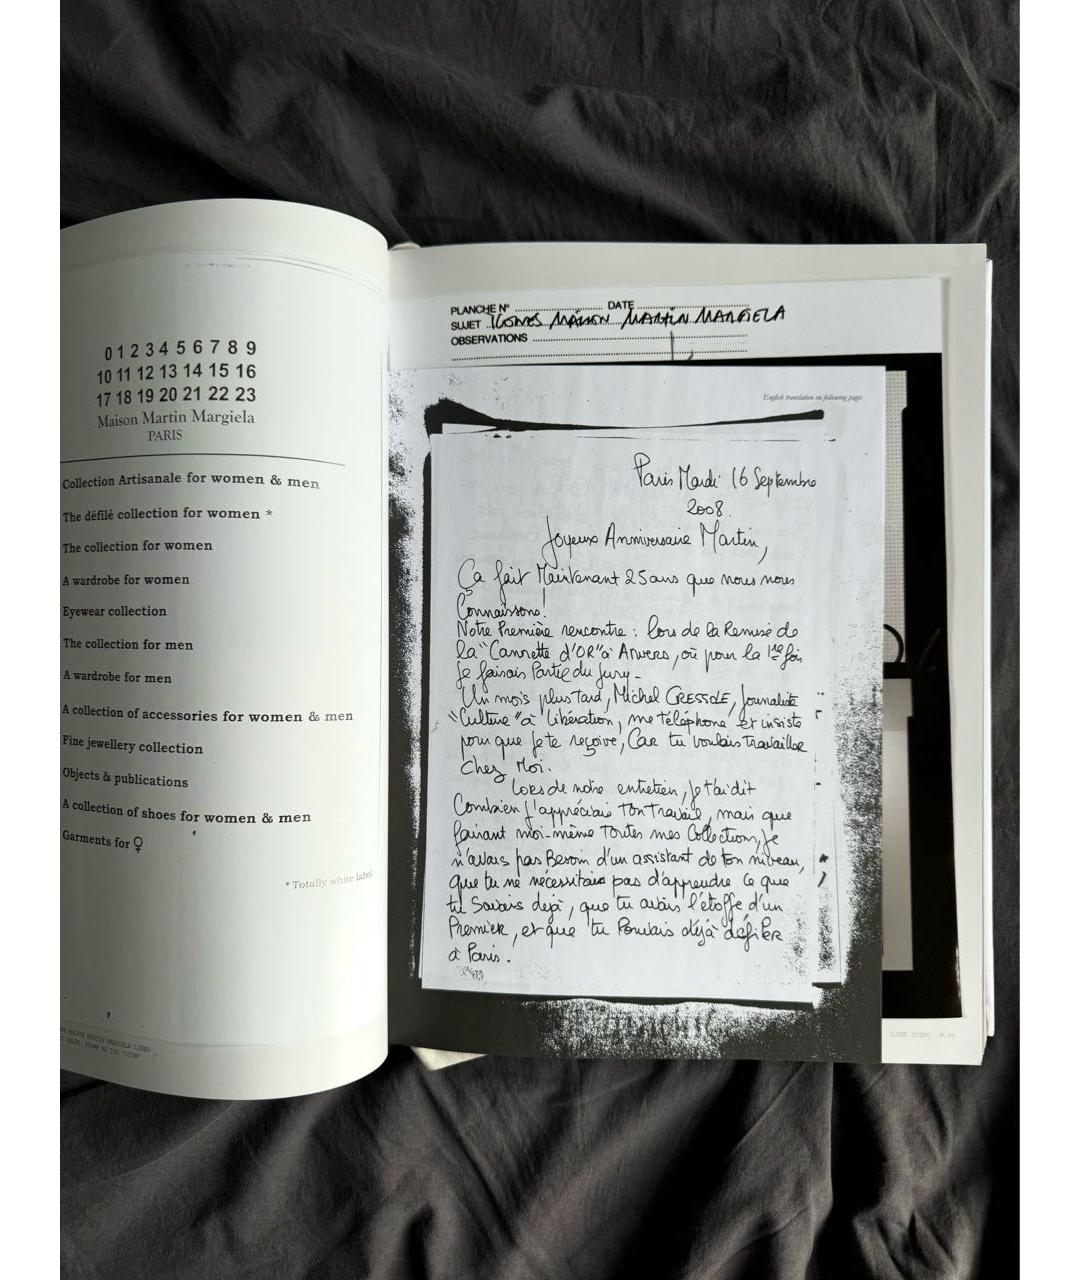 0 1 2 3 4 5 6 7 8 9
10 11 12 13 14 15 16
17 18 19 20 21 22 23
Maison Martin Margiela
PARIS
Collection Artisanale for women & men
The défilé collection for women *
The collection for women
A wardrobe for women
Eyewear collection
The collection for men
A wardrobe for men
A collection of accessories for women & men
Fine jewellery collection
Objects & publications
A collection of shoes for women & men
Garments for ♀
* Totally white label
MAISON MARTIN MARGIELA LINES
PLANCHE N° DATE
SUJET ICONES MAISON MARTIN MARGIELA
OBSERVATIONS
English translation on following pages
Paris Mardi 16 Septembre
2008.
Joyeux Anniversaire Martin,
Ça fait Maintenant 25 ans que nous nous
Connaissons!
Notre Première rencontre : lors de la Remise de
la "Cannette d'OR" à Anvers, où pour la 1ère fois
Je faisais Partie du Jury -
Un mois plus tard, Michel CRESSOLE, Journaliste
"Culture" à Libération, me téléphone et insiste
pour que Je te reçoive, Car tu voulais Travailler
Chez Moi.
Lors de notre entretien, Je t'ai dit
Combien J'appréciais Ton Travail, mais que
faisant moi-même Toutes mes Collections, Je
n'avais pas Besoin d'un assistant de ton niveau,
que tu ne nécessitais pas d'apprendre ce que
tu Savais déjà, que tu avais l'étoffe d'un
Premier, et que tu Pouvais déjà défiler
à Paris.